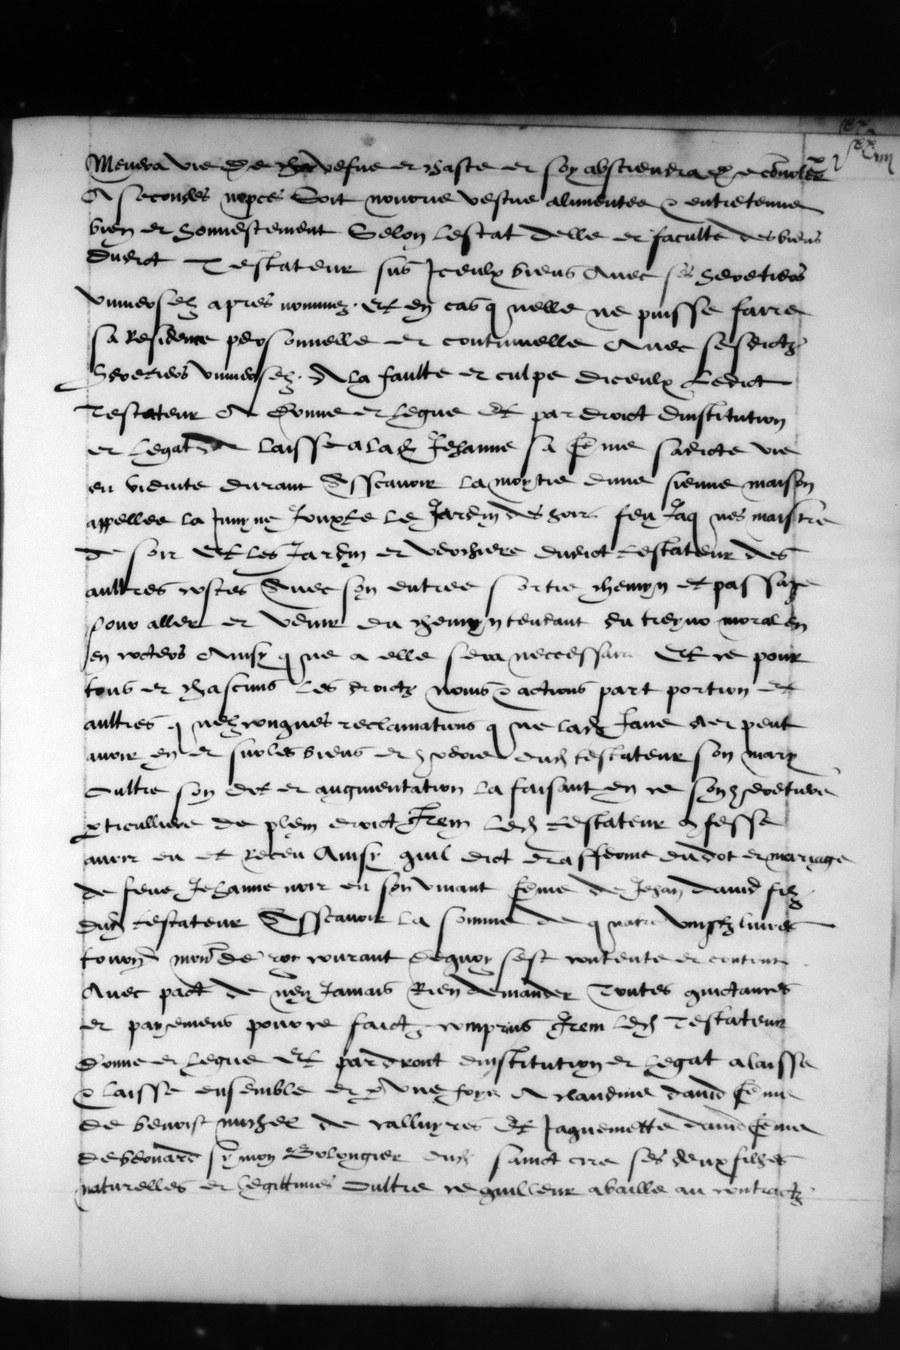 Menera vie de vefve et chaste et soy abstiendra de convoler
A secondes nopces Soit nourrie vestue alimentee & entretenue
bien et honnestement Selon lestat delle et faculte des biens
dudict Testateur sus Iceulx biens Avec ses heretiers
universelz apres nommez. Et en cas quelle ne puisse faire
sa Residence personnelle et continuelle Avec sesdictz
heretiers universelz. A la faulte et culpe diceulx Ledict
Testateur A donne et legue Et par droict dinstitution
et legat laisse a lad Jehanne sa feme sadicte vie
en viduite durant Asscavoir la moytie dune sienne maison
appellee la Jouxte le Jardin des hoirs feu Jaques maistre
de soir Et les Jardin et vdudict testateur des
aultres costes Avec son entree sortie chemyn et passaige
pour aller et venir du chemyn tendant du
en Ainsy que a elle sera necessaire Et ce pour
tous et chascuns les droictz noms & actions part portion et
aultres quelzconques reclamations que lad Jane A et peut
avoir en et sus les biens et dud testateur son mary
Oultre son dot et augmentation la faisant en ce son heretiere
particulliere de plein droict Item led testateur confesse
avoir eu et Receu Ainsy quil dict du dot et mariage
de feue Jehanne en son vivant feme de Jehan david filz
dud testateur Asscavoir la somme de quatre vingtz livres
tournois mon de roy courant dequoy sest contente et
Avec pact de nen Jamais Rien demander Toutes quictances
et payemens pour ce faictz comprins Item led Testateur
donne et legue Et par droict dinstitution et legat a laisse
& laisse ensemble et une foys A claudine david feme
de benoist michel de valluyres Et Jaquemette david feme
de bernard symon Bolongier dud sainct cire ses deux filhes
naturelles et legittimes Oultre ce quil leur a baille au contractz